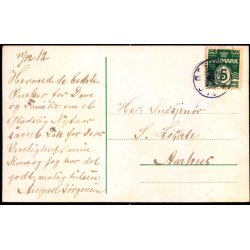 11/12 12
Hermed de bedste
Ønsker for Dem
og Familie om et
Glædelig Nytaar
samt Tak for Deres
Venlighed, min
Kone og jeg har det
godt, venlig hilsen
August Jørgensen
Hr. Ingeniør
Aarhus
DANMARK
5